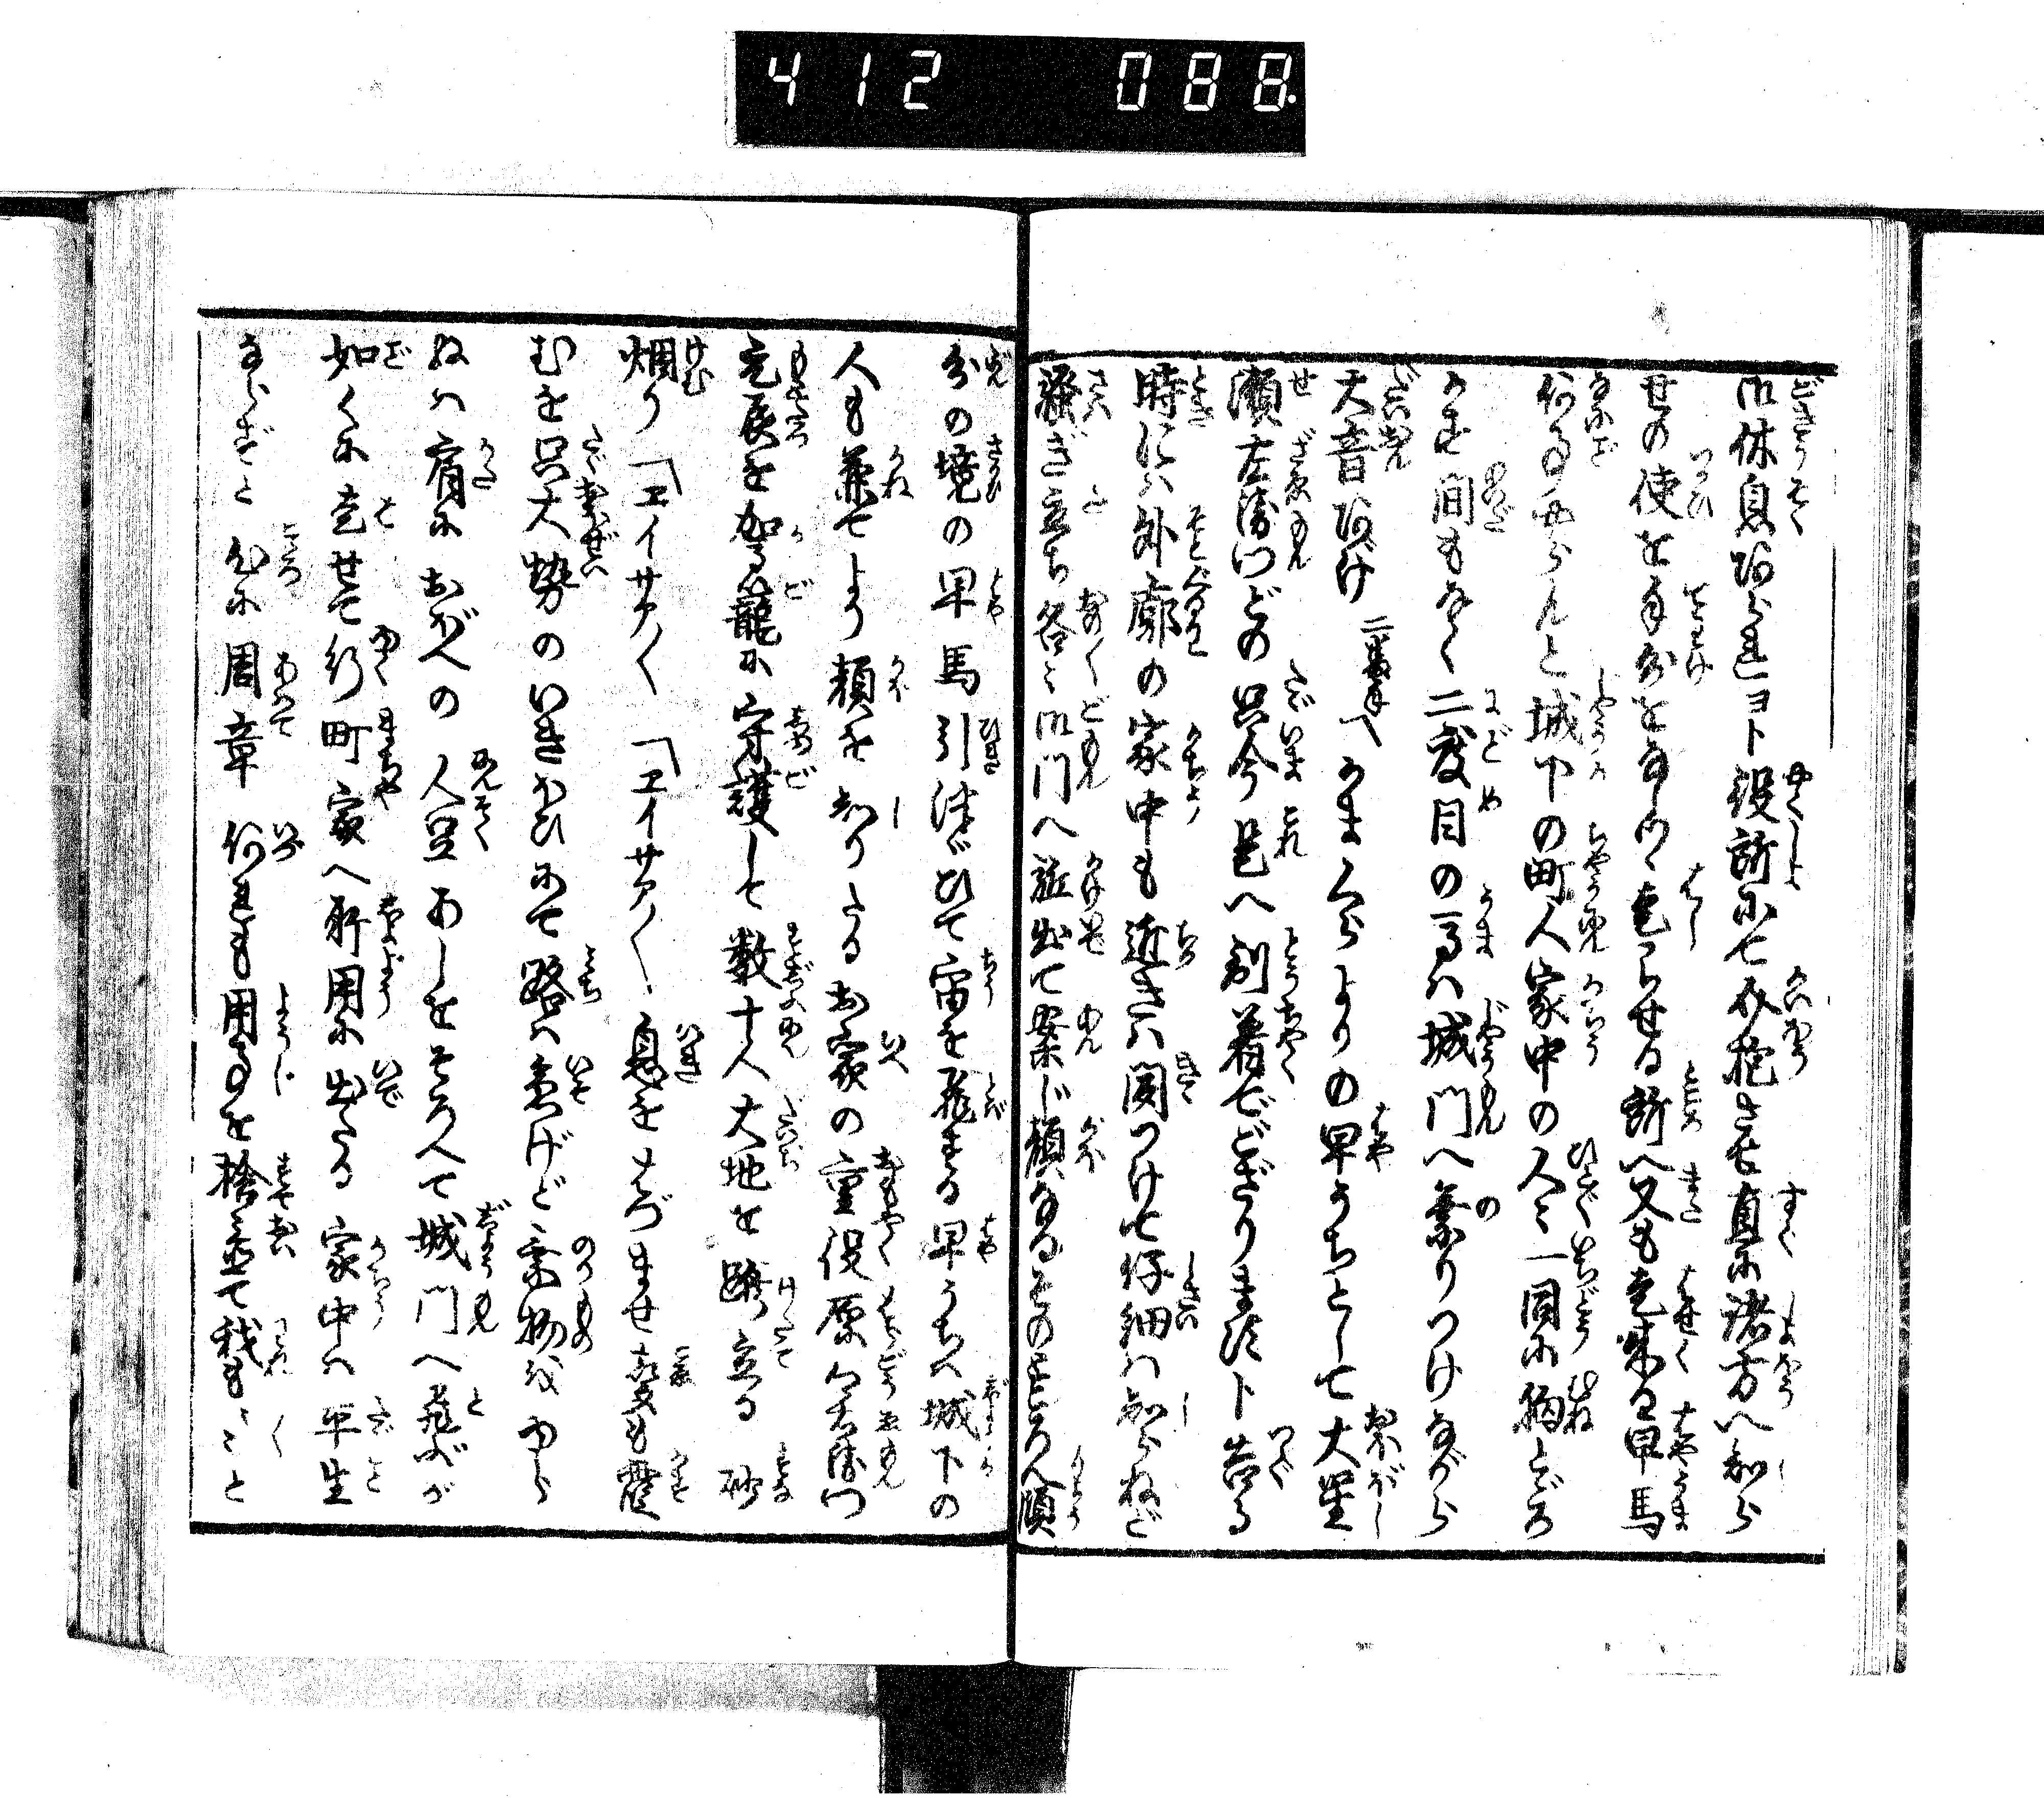 412 088.
御休息あられヨト役所にて介抱させ直に諸方へ知ら
せの使を手分をなしつゝ走らせる所へ又も走来る早馬
何事やらんと城下の町人家中の人々一同に胸とゞろ
かす間もなく二度目の馬は城門へ乗りつけながら
大音あげ へかまくらよりの早うちとして大星
瀬左衛門どの只今是へ到着でござりますト告る
時には外廓の家中も近きは聞つけて仔細は知らねど
騒ぎ立ち各々御門へ駈出て案じ顔なるそのところへ須
分の境の早馬引继ぎて宙を飛する早うちへ城下の
人も兼てより頼を知りたるお家の重役原郷右衛門
立展を加る籠に守護して数十人大地を蹴立る砂
烟り「ヱイサア〱「ヱイサア〱息をはづませ声も霞
むを只大勢のいきほひにて路は急げど乗物はゆら
ぬは肩におぼへの人足あしをそろへて城門へ飛ぶが
如くに走せて行町家へ所用に出たる家中は平生
ならずと心に周章何れも用事を捨置て我も〳〵と